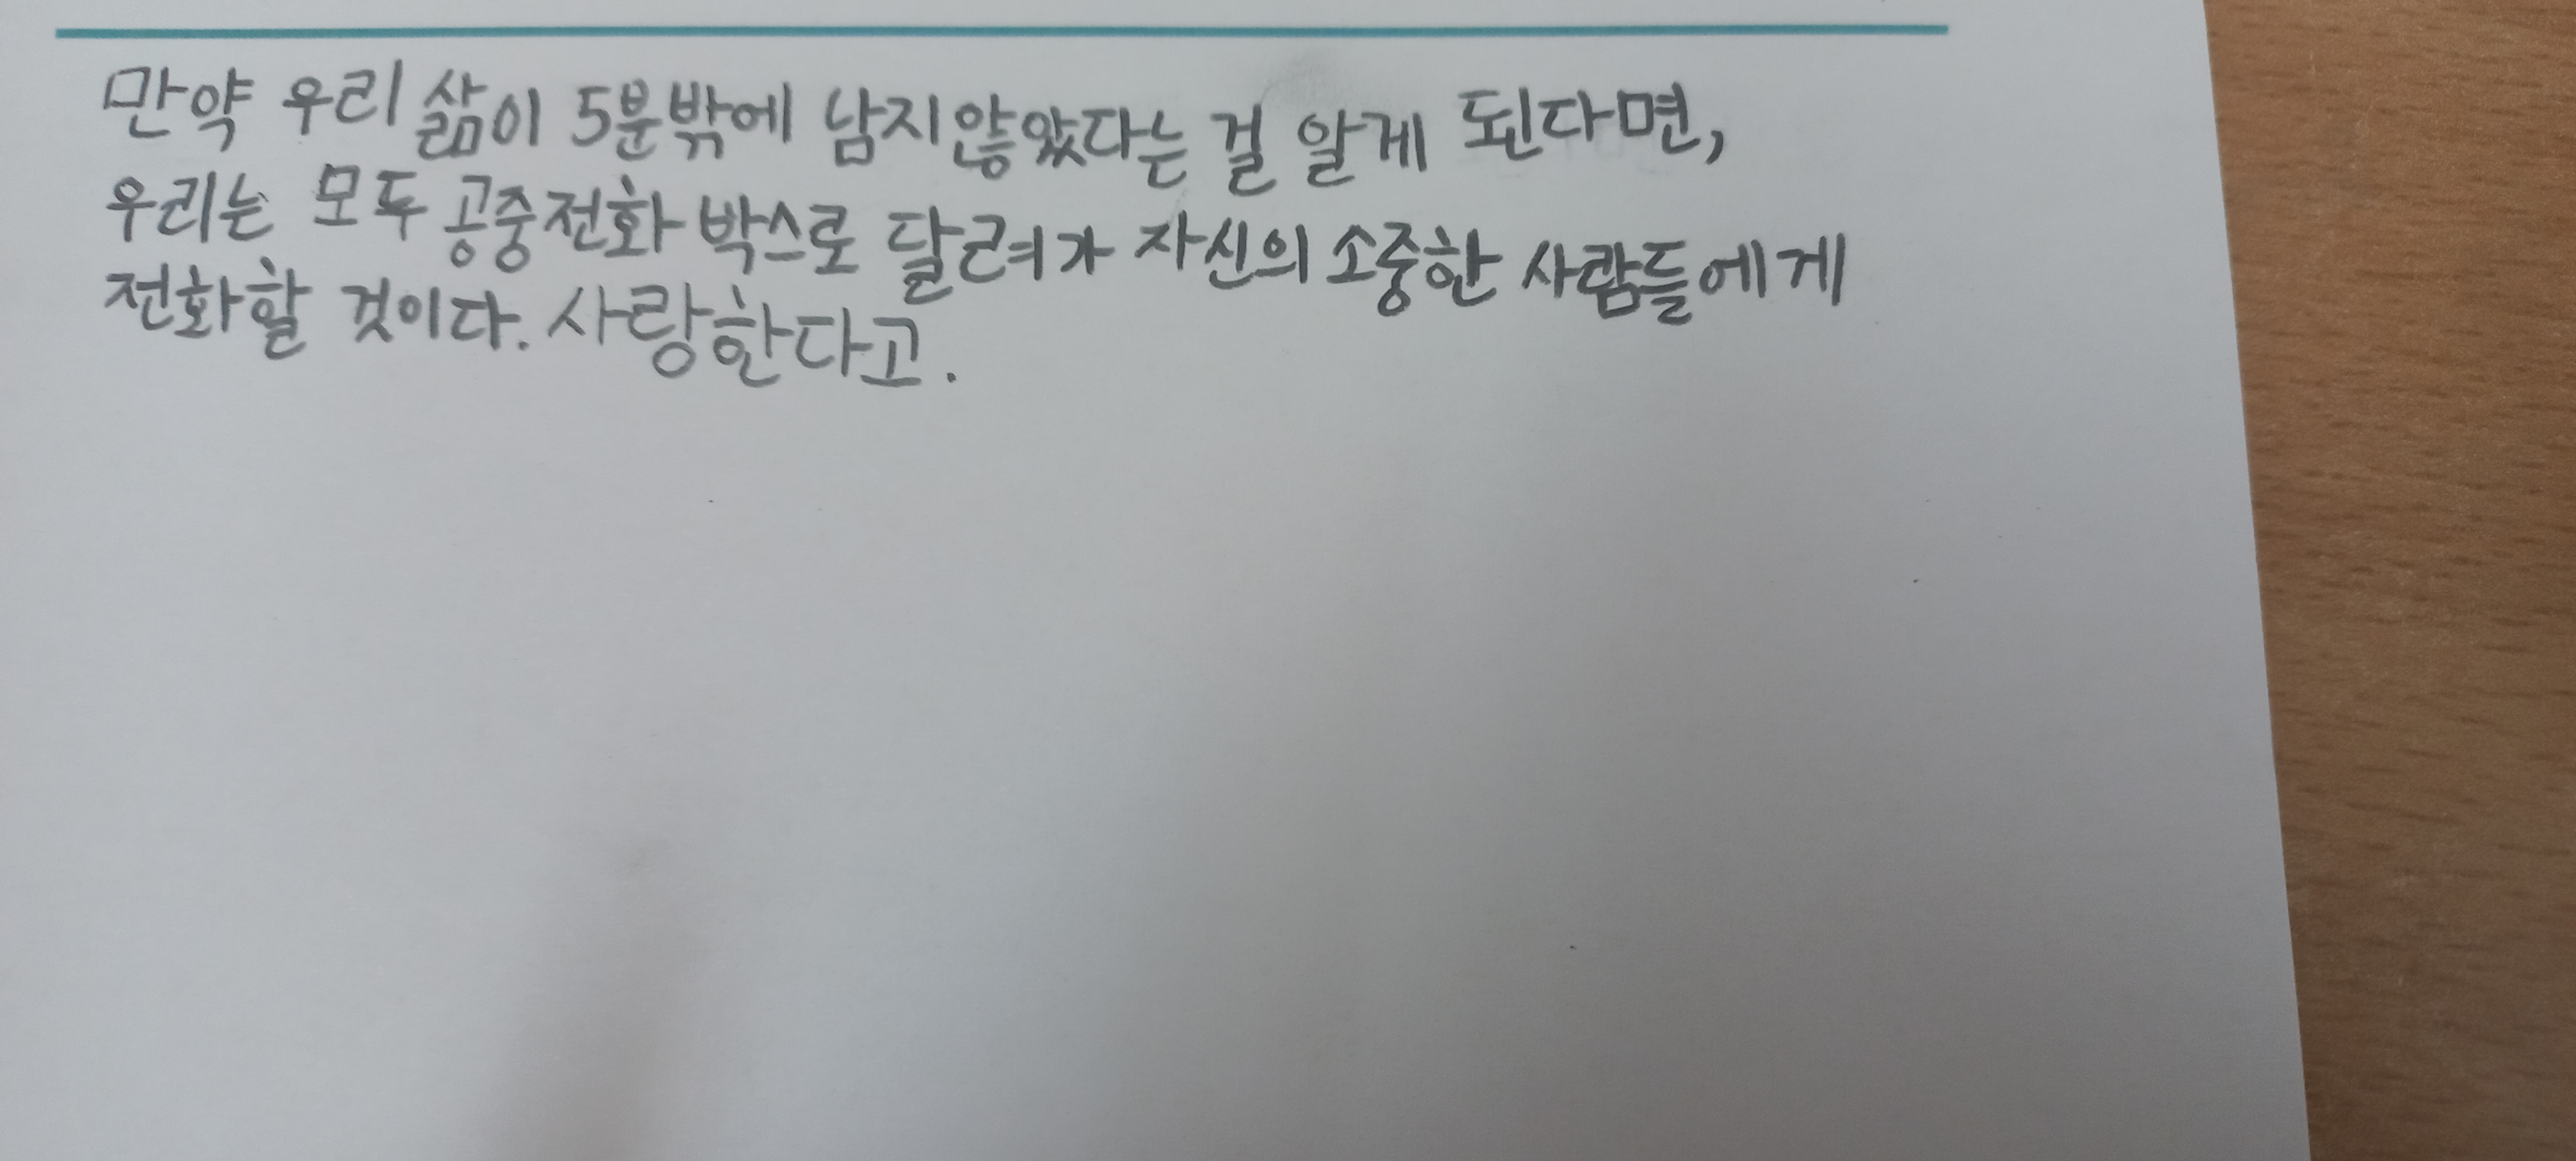 만약 우리 삶이 5분밖에 남지않았다는 걸 알게 된다면,
우리는 모두 공중전화 박스로 달려가 자신의 소중한 사람들에게
전화할 것이다. 사랑한다고.